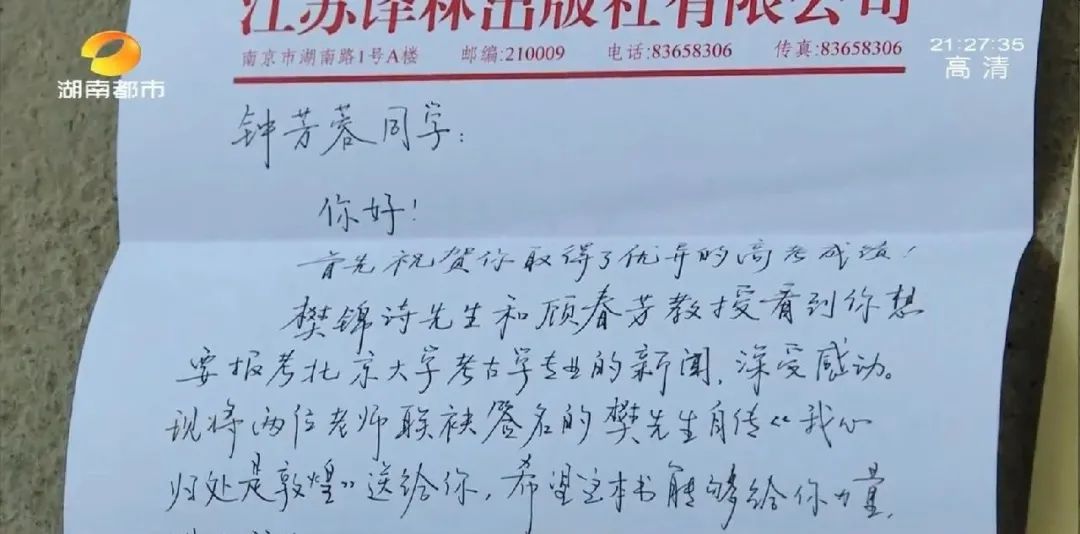 江苏译林出版社有限公司
南京市湖南路1号A楼 邮编:210009 电话:83658306 传真:83658306
湖南都市
21:27:35
高清
钟芳蓉同学：
你好！
首先祝贺你取得了优异的高考成绩！
樊锦诗先生和顾春芳教授看到你想
要报考北京大学考古学专业的新闻，深受感动。
现将两位老师联袂签名的樊先生自传《我心
归处是敦煌》送给你，希望这本书能够给你力量，